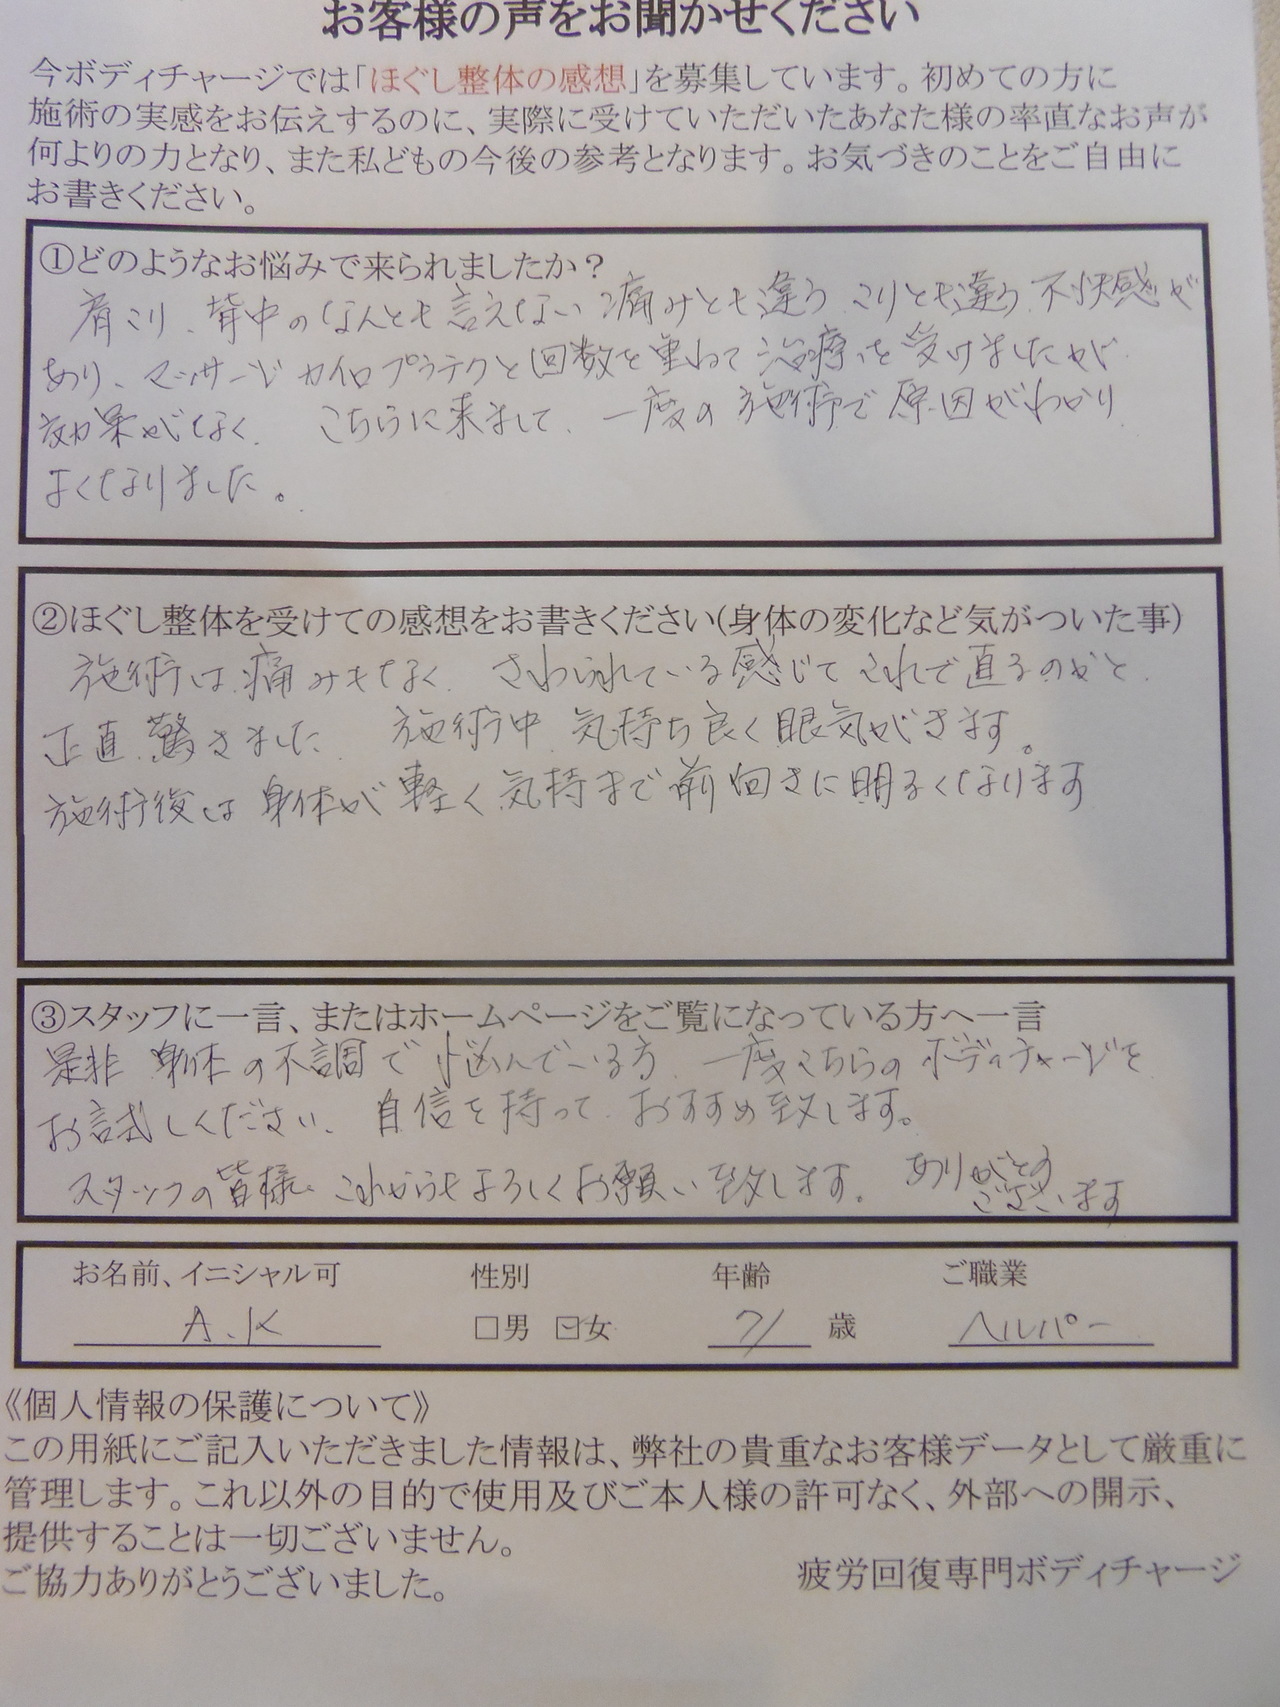 お客様の声をお聞かせください
今ボディチャージでは「ほぐし整体の感想」を募集しています。初めての方に
施術の実感をお伝えするのに、実際に受けていただいたあなた様の率直なお声が
何よりの力となり、また私どもの今後の参考となります。お気づきのことをご自由に
お書きください。
①どのようなお悩みで来られましたか？
肩こり、背中のなんとも言えない痛みとも違うこりとも違う不快感が
あり、マッサージカイロプラテクと回数を重ねて治療を受けましたが
効果がなく、こちらに来まして、一度の施術で原因がわかり
よくなりました。
②ほぐし整体を受けての感想をお書きください(身体の変化など気がついた事)
施術は痛みもなく、さわられている感じでこれで直るのかと
正直驚きました、施術中気持ち良く眠気がきます。
施術後は身体が軽く気持まで前向きに明るくなります
③スタッフに一言、またはホームページをご覧になっている方へ一言
是非身体の不調で悩んでいる方、一度こちらのボディチャージを
お試しください、自信を持っておすすめ致します。
スタッフの皆様これからもよろしくお願い致します。ありがとう
ございます
お名前、イニシャル可 性別 年齢 ご職業
A.K □男 ☑女 71 歳 ヘルパー
《個人情報の保護について》
この用紙にご記入いただきました情報は、弊社の貴重なお客様データとして厳重に
管理します。これ以外の目的で使用及びご本人様の許可なく、外部への開示、
提供することは一切ございません。
ご協力ありがとうございました。
疲労回復専門ボディチャージ